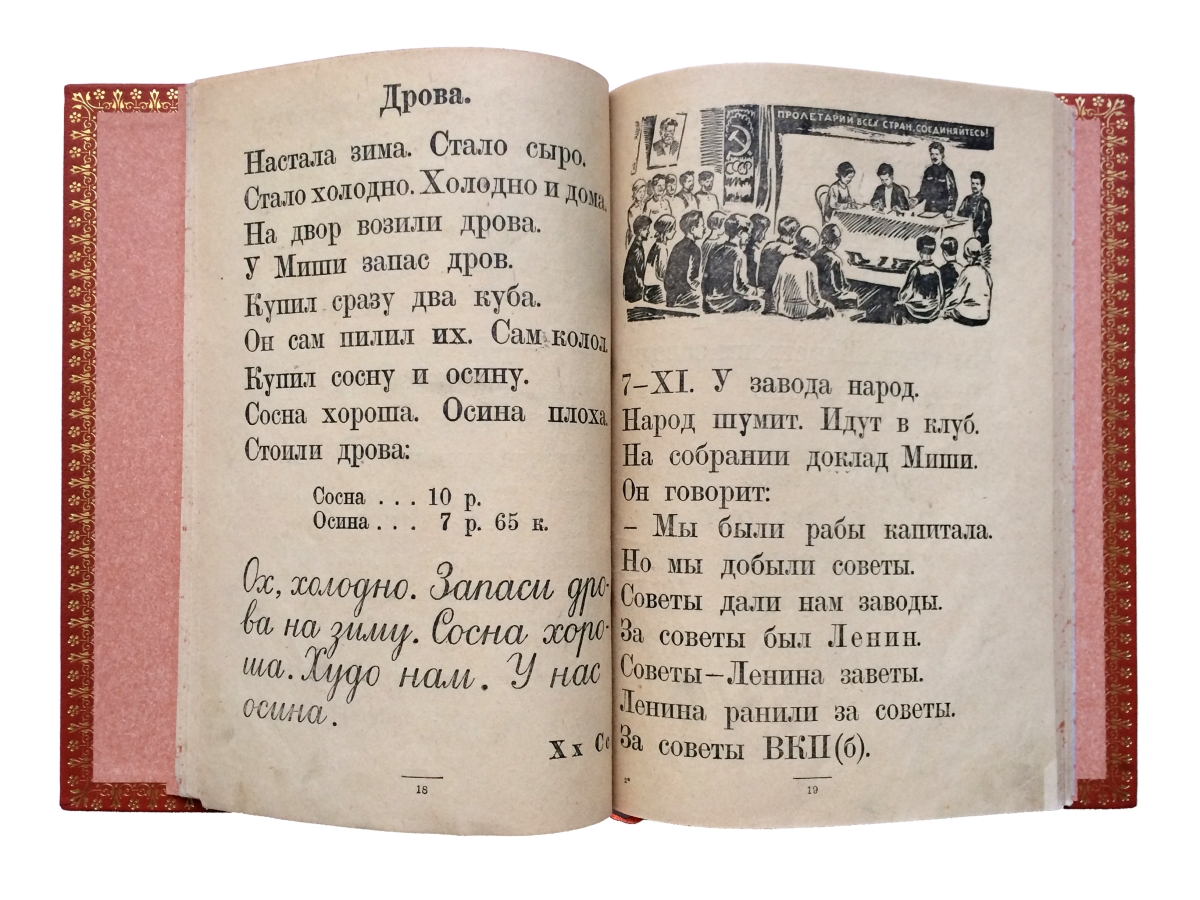 Дрова.
Настала зима. Стало сыро.
Стало холодно. Холодно и дома.
На двор возили дрова.
У Миши запас дров.
Купил сразу два куба.
Он сам пилил их. Сам колол.
Купил сосну и осину.
Сосна хороша. Осина плоха.
Стоили дрова:
Сосна . . . 10 р.
Осина . . . 7 р. 65 к.
Ох, холодно. Запаси дро-
ва на зиму. Сосна хоро-
ша. Худо нам. У нас
осина.
Х х Сс
18
ПРОЛЕТАРИИ ВСЕХ СТРАН, СОЕДИНЯЙТЕСЬ!
СССР
7–XI. У завода народ.
Народ шумит. Идут в клуб.
На собрании доклад Миши.
Он говорит:
– Мы были рабы капитала.
Но мы добыли советы.
Советы дали нам заводы.
За советы был Ленин.
Советы—Ленина заветы.
Ленина ранили за советы.
За советы ВКП(б).
2*
19